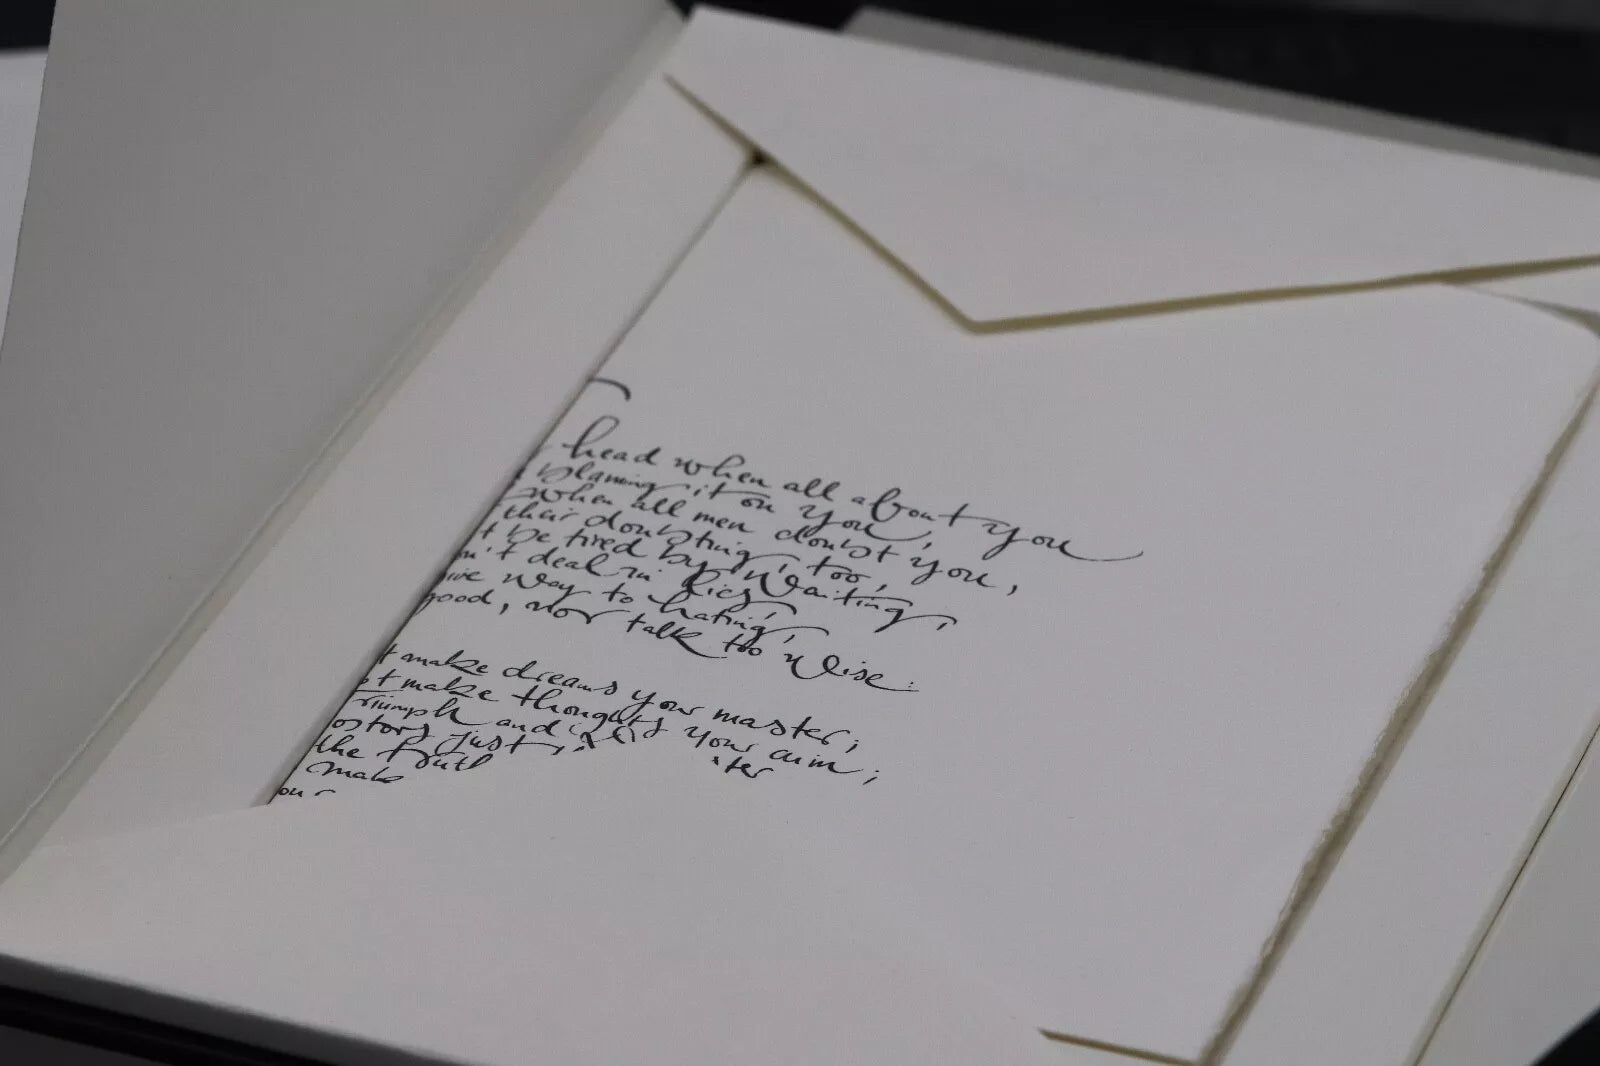 head when all about you
blaming it on you,
when all men doubt you,
their doubting, too,
t be tired by waiting,
n't deal in lies,
ive way to hating,
good, nor talk too wise:
t make dreams your master;
t make thoughts your aim;
riumph and
asters just
the truth
make
our